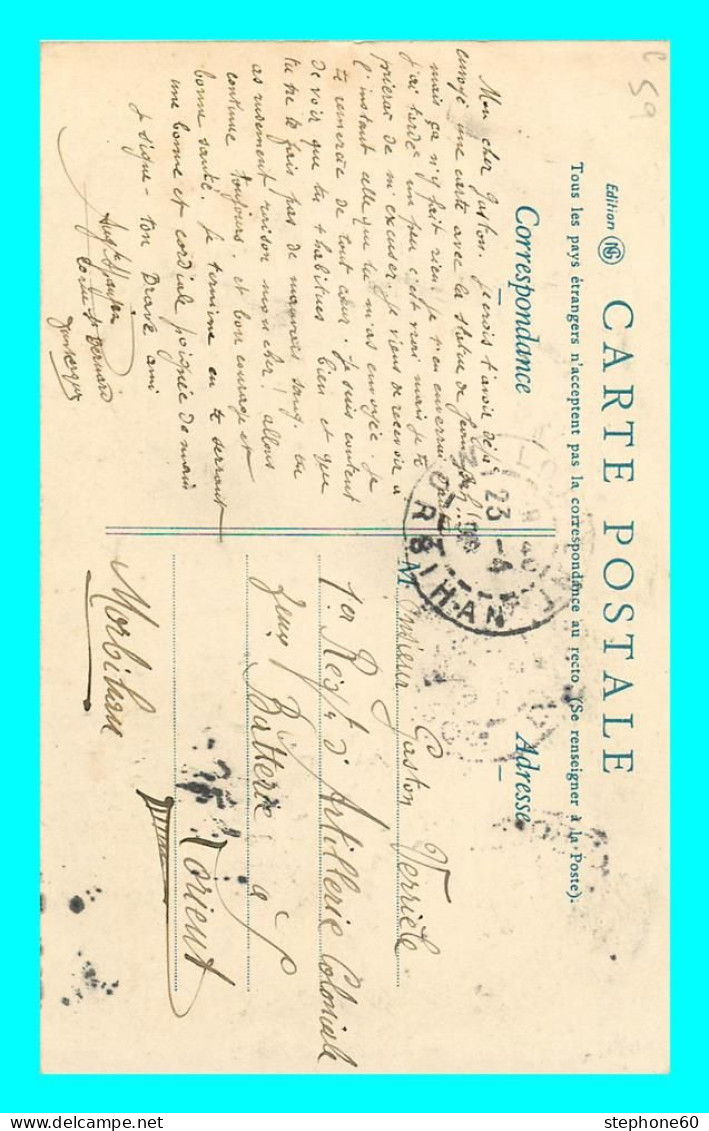 C 59
Edition NG CARTE POSTALE
Tous les pays étrangers n'acceptent pas la correspondance au recto (Se renseigner à la Poste).
Correspondance
Adresse
Mon cher Gaston. Je crois t'avoir déjà
envoyé une carte avec la statue de Jean
mais ça n'y fait rien, je t'en enverrai
j'ai tardé un peu c'est vrai mais je te
prierai de m'excuser. Je viens de recevoir à
l'instant celle que tu m'as envoyée. Je
te remercie de tout cœur. Je suis content
de voir que tu t'habitues bien et que
tu ne te fais pas de mauvais sang. tu
as rudement raison mon cher! allons
continue toujours. et bon courage et
bonne santé. Je termine en te serrant
une bonne et cordiale poignée de main
Je signe - ton Brave ami
23 -4
RBIHAN
Monsieur Gaston Verrièle
1er Régt d'Artillerie Coloniale
2eme Batterie
à Lorient
Morbihan
stephone60